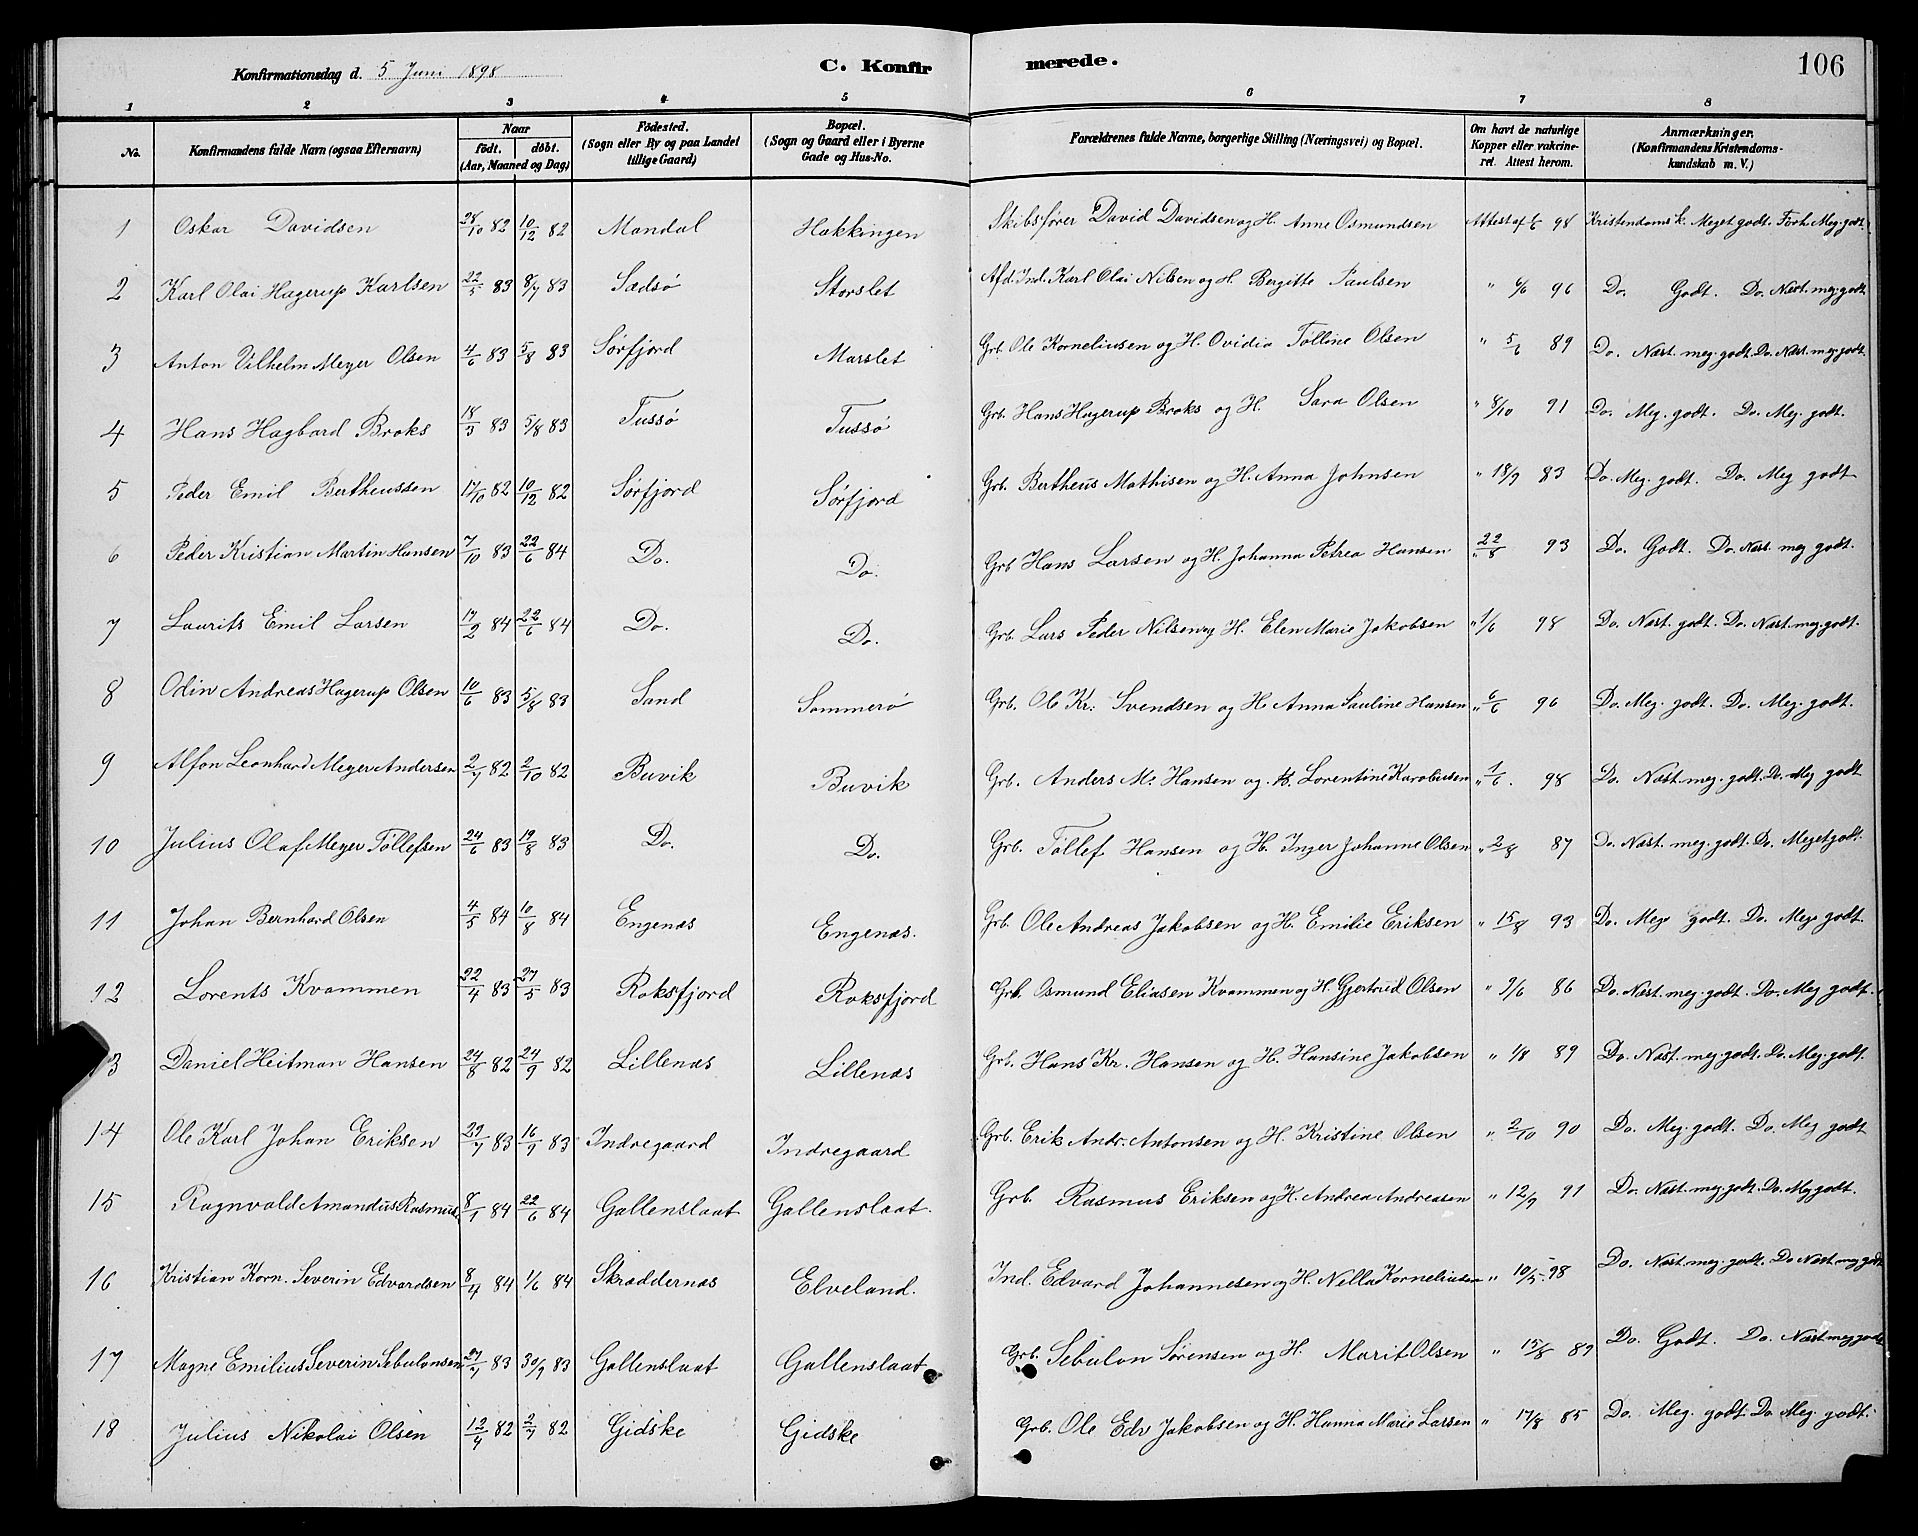 Konfirmationsdag d. 5 Juni 1898 C. Konfirmerede. 106
1 2 3 4 5 6 7 8
No. Konfirmandens fulde Navn (ogsaa Efternavn) Naar födt. döbt. (Aar, Maaned og Dag) Födested. (Sogn eller By og paa Landet tillige Gaard) Bopæl. (Sogn og Gaard eller i Byerne Gade og Hus-No. Forældrenes fulde Navne, borgerlige Stilling (Næringsvei) og Bopæl. Om havt de naturlige Kopper eller vakcineret. Attest herom. Anmærkninger. (Konfirmandens Kristendomskundskab m. V.)
1 Oskar Davidsen 28/10 82 10/12 82 Mandal Hakkingen Skibsfører David Davidsen og H. Anne Osmundsen Attest af 98 Kristendomsk. Meget godt. Forh. Meg. godt.
2 Karl Olai Hagerup Karlsen 22/5 83 8/7 83 Sædsø Storslet Afd. Ind. Karl Olai Nilsen og H. Bergitte Paulsen " 6/6 96 Do. Godt. Do. Næst. meg. godt
3 Anton Vilhelm Meyer Olsen 4/6 83 5/8 83 Sørfjord Marslet Grb. Ole Korneliusen og H. Ovidia Tølline Olsen " 5/6 89 Do. Næst. meg. godt. Do. Næst. meg. godt.
4 Hans Hagbard Broks 18/3 83 5/8 83 Tussø Tussø Grb. Hans Hagerup Broks og H. Sara Olsen " 8/10 91 Do. Meg. godt. Do. Meg. godt.
5 Peder Emil Bertheussen 17/10 82 10/12 82 Sørfjord Sørfjord Grb. Bertheus Mathisen og H. Anna Johnsen " 18/9 83 Do. Meg. godt. Do. Meg godt
6 Peder Kristian Martin Hansen 7/10 83 22/6 84 Do. Do. Grb Hans Larsen og H. Johanna Petrea Hansen " 22/8 93 Do. Godt. Do. Næst. meg godt.
7 Laurits Emil Larsen 17/2 84 22/6 84 Do. Do. Grb. Lars Peder Nilsen og H. Elen Marie Jakobsen " 1/6 98 Do. Næst. godt. Do. Næst. meg. godt.
8 Odin Andreas Hagerup Olsen 10/6 83 5/8 83 Sand Sommerø Grb. Ole Kr. Svendsen og H. Anna Pauline Hansen " 6/6 96 Do. Meg. godt. Do. Meg. godt.
9 Alfon Leonhard Meyer Andersen 2/7 82 2/10 82 Buvik Buvik Grb. Anders M. Hansen og H. Lorentine Karoliusen " 1/6. 98 Do. Næst. meg. godt. Do. Meg godt
10 Julius Olaf Meyer Tøllefsen 24/6 83 19/8 83 Do. Do. Grb. Tøllef Hansen og H. Inger Johanne Olsen " 2/8 87 Do. Næst. meg. godt. Do. Meget godt.
11 Johan Bernhard Olsen 4/5 84 10/8 84 Engenæs Engenæs. Grb. Ole Andreas Jakobsen og H. Emilie Eriksen " 15/8 93 Do. Meg. godt. Do. Meg. godt.
12 Lorents Kvammen 22/4 83 27/5 83 Roksfjord Roksfjord Grb. Osmund Eliasen Kvammen og H. Gjertrud Olsen " 9/6 86 Do. Næst. meg. godt. Do. Meg godt.
3 Daniel Heitman Hansen 24/8 82 24/9 82 Lillenæs Lillenæs Grb. Hans Kr. Hansen og H. Hansine Jakobsen " 1/8 89 Do. Næst. meg. godt. Do. Meg. godt.
14 Ole Karl Johan Eriksen 29/7 83 16/9 83 Indregaard Indregaard Grb. Erik Andr. Antonsen og H. Kristine Olsen " 2/10 90 Do. Meg. godt. Do. Meg godt
15 Ragnvald Amandus Rasmus. 8/1 84 22/6 84 Gallenslaat Gallenslaat. Grb. Rasmus Eriksen og H. Andrea Andreasen " 12/9 91 Do. Næst. meg. godt. Do. Meg godt.
16 Kristian Korn. Severin Edvardsen 8/4 84 1/6 84 Skraddernæs Elveland. Ind. Edvard Johannesen og H. Nella Korneliusen " 10/5 98 Do. Næst. meg. godt. Do Næst. meg godt
17 Magne Emilius Severin Sebulonsen 27/7 83 30/9 83 Gallenslaat Gallenslaat Grb. Sebulon Sørensen og H. Marit Olsen " 15/8 89 Do. Godt. Do. Næst meg godt
18 Julius Nikolai Olsen 12/4 82 2/7 82 Gidske Gidske Grb. Ole Edv Jakobsen og H. Hanna Marie Larsen " 17/8 85 Do. Meg. godt. Do. Meg. godt.